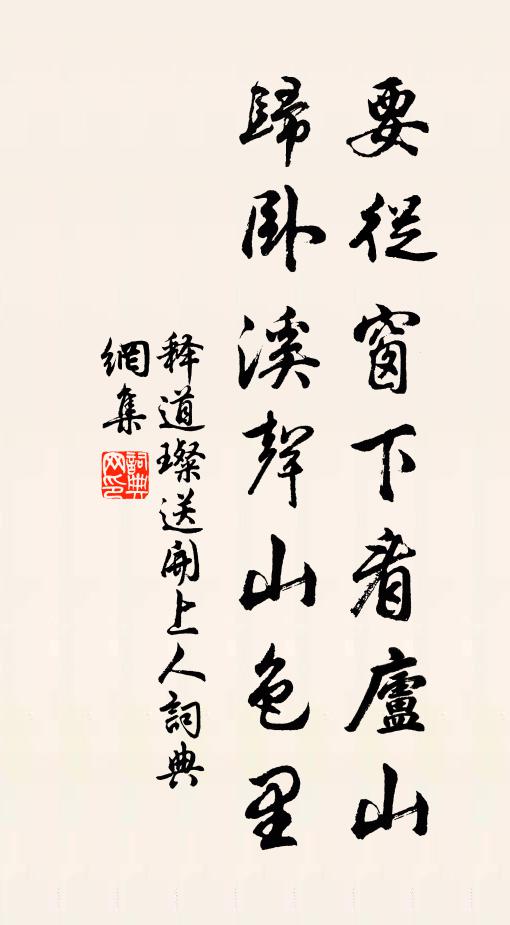 要從窗下看廬山
歸臥溪聲山色里
释道璨送開上人詞典
網集
詞典網印